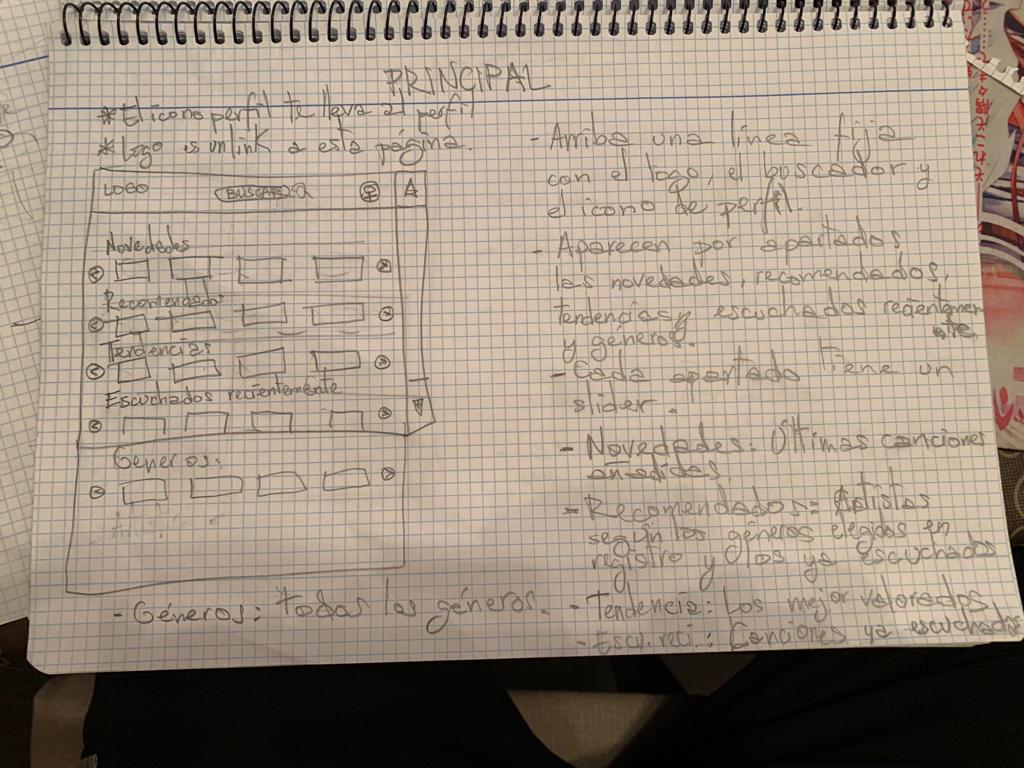 PRINCIPAL
*El icono perfil te lleva al perfil
*Logo es un link a esta página.
LOGO
BUSCAR
Novedades
Recomendados
Tendencias
Escuchados recientemente
Generos:
- Géneros: todas los géneros.
- Arriba una línea fija
con el logo, el buscador y
el icono de perfil.
- Aparecen por apartados
las novedades, recomendados,
tendencias y escuchados recientemen
te
y géneros.
- Cada apartado tiene un
slider.
- Novedades: Últimas canciones
añadidas.
- Recomendados: Artistas
según los géneros elegidos en
registro y los ya escuchados
- Tendencia: Los mejor valorados
- Escu. reci.: Canciones ya escuchadas